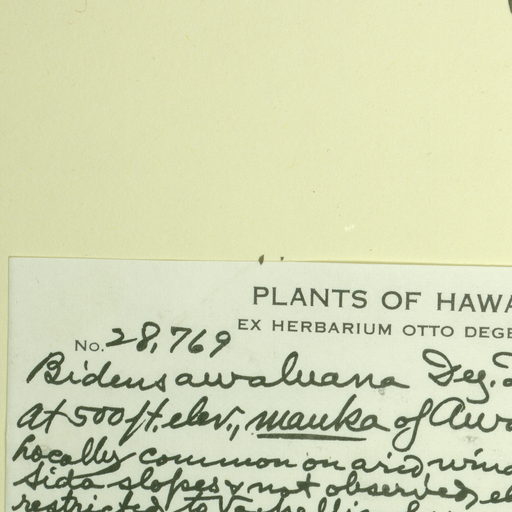 PLANTS OF HAWA
EX HERBARIUM OTTO DEGE
No. 28,769
Bidens awaluana Deg.
at 500 ft. elev., mauka of Awa
Locally common on arid wind
Sida slopes & not observed el
restricted to